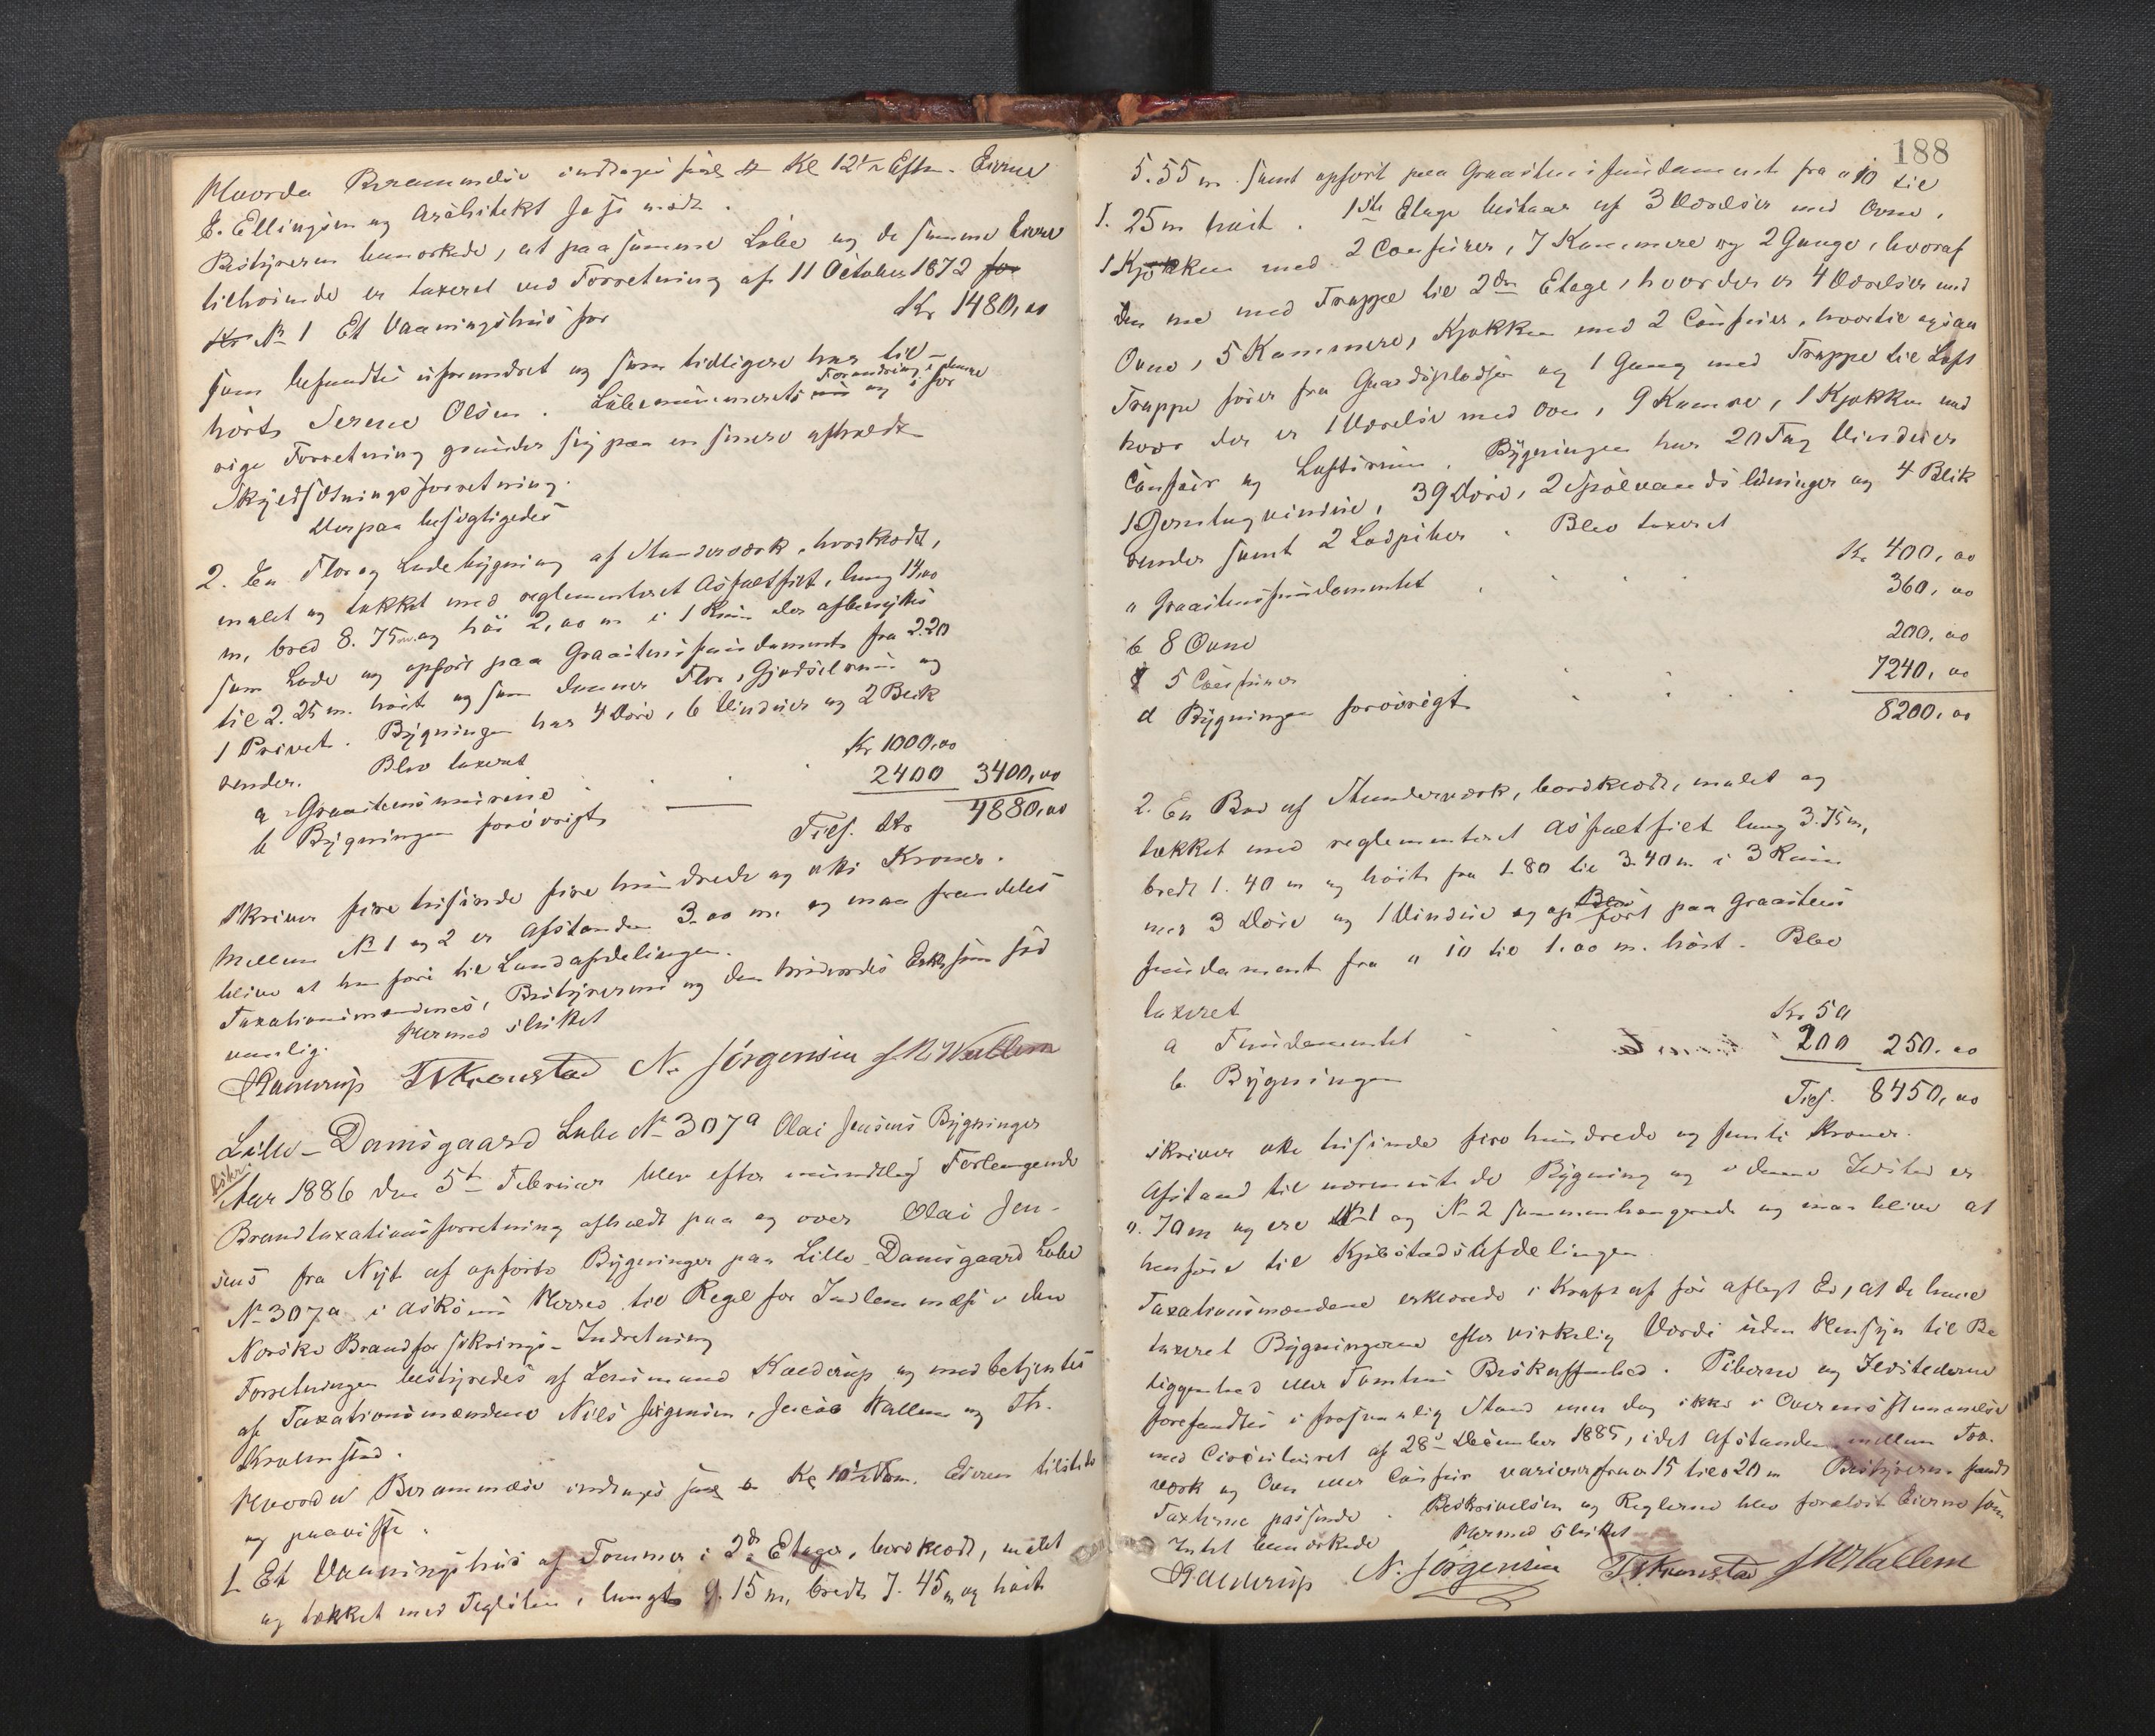 Hvorda Berammelse indtoges fuld Kl 12½ Eftm. Eierne
E. Ellingsen og Arkitekt mødt.
Bestyreren bemærkede, at paa samme Löbe og de samme Eiere
tilhörende er taxeret ved Forretning af 11 October 1872 for
Kr № 1 Et Vaaningshus for Kr 1480,00
som befandtes uforandret og som tidligere har til-
hört Serene Olsen. Löbenummerets Forandring i denne
og i for
rige Forretning grunder sig paa en senere afholdt
Skyldsætningsforretning.
Derpaa besigtigedes
2. En Flor og Ladebygning af Stænderværk, bordklædt,
malet og tækket med reglementeret Asfaltfilt, lang 14,00
m, bred 8.75 m og höi 2,00 m i 1 Rum der afbenyttes
som Lade og opfört paa Graastensfundament fra 2.20
til 2.25 m. höit og som danner Flor, Gjödselrum og
1 Privet. Bygningen har 4 Döre, 6 Vinduer og 2 Blik
render. Blev taxeret
a Graastensmurene Kr 1000,00
b Bygningen forövrigt 2400 3400,00
Tils. Kr 4880,00
skriver fire tusinde fire hundrede og otti Kroner.
Mellem № 1 og 2 er Afstanden 3.00 m. og maa fremdeles
blive at henföre til Landafdelingen.
Taxationsmændenes, Bestyrerens og den
vanlig. Hermed sluttet
Kalderup T Kronstad N. Jörgensen J M Wallem
Lille-Damsgaard Löbe № 307a Olai Jensens Bygninger
Aar 1886 den 5te Februar blev efter mundtlig Forlangende
Brandtaxationsforretning afholdt paa og over Olai Jen-
sens fra Nyt af opförte Bygninger paa Lille Damsgaard Löbe
№ 307a i Asköens Herred til Regel for Indlemmelse i den
Norske Brandforsikrings-Indretning
Forretningen bestyredes af Lensmand Kalderup og med betjentes
af Taxationsmændene Nils Jörgensen, Jacob Wallem og Th.
Kronstad.
Hvorda Berammelse indtoges fuld Kl 10½ Form. Eieren tilstede
og paaviste.
1. Et Vaaningshus af Tømmer i 2de Etager, bordklædt, malet
og tækket med Teglsten, langt 9.15 m, bredt 7.45 m og höit
188
5.55 m. samt opfört paa Graastensfundament fra 0 10 til
1.25 m höit. 1ste Etage bestaar af 3 Værelser med Ovne,
1 Kjøkken med 2 Comfurer, 7 Kammere og 2 Gange, hvoraf
den ene med Trappe til 2den Etage, hvor der er 4 Værelser med
Ovne, 5 Kammere, Kjøkken med 2 Comfurer, hvortil ogsaa
Trappe förer fra Gaardspladsen og 1 Gang med Trappe til Loft
hvor der er 1 Værelse med Ovn, 9 Kamre, 1 Kjøkken med
Comfur og Loftsrum. Bygningen har 20 Fag Vinduer
1 Jerntagvindue, 39 Döre, 2 Spölevandsledninger og 4 Blik
render samt 2 Ladpiber. Blev taxeret
a Graastensfundamentet Kr 400,00
b 8 Ovne 360,00
5 Comfurer 200,00
d Bygningen forövrigt 7240,00
8200,00
2. En Bod af Stænderværk, bordklædt, malet og
tækket med reglementeret Asfaltfilt lang 3.75 m,
bredt 1.40 m og höit fra 1.80 til 3.40 m. i 3 Rum
med 3 Döre og 1 Vindue og opfört paa Graastens
fundament fra 0 10 til 1.00 m. höit. Blev
taxeret
a Fundamentet Kr 50
b Bygningen 200 250.00
Tils. 8450,00
skriver otte tusinde fire hundrede og femti Kroner.
Afstand til nærmeste Bygning og i denne Ildsted er
0.70 m og ere № 1 og № 2 sammenhængende og maa blive at
henföre til Kjöbstadsafdelingen.
Taxationsmændene erklærede i Kraft af för aflagt Ed, at de have
taxeret Bygningerne efter virkelig Værdi uden Hensyn til Be
liggenhed eller Tomtens Beskaffenhed. Piberne og Ildstederne
forefandtes i forsvarlig Stand men dog ikke i Overensstemmelse
med Cirkulæret af 28de December 1885, idet Afstanden mellem Træ-
værk og Ovn eller Comfur varierer fra 0 15 til 0 20 m Bestyreren fandt
Taxterne passende. Beskrivelsen og Reglerne blev forelæst Eieren som
Intet bemærkede Hermed sluttet
Kalderup N. Jörgensen T Kronstad J M Wallem